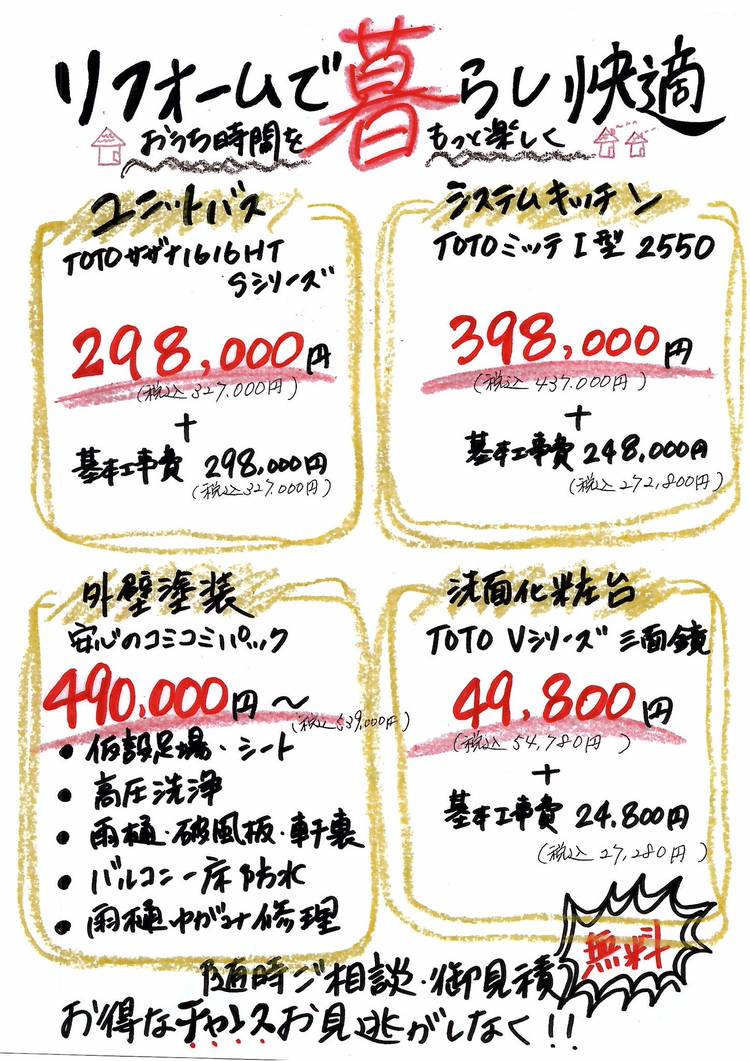 リフォームで暮らし快適
おうち時間をもっと楽しく
ユニットバス
TOTOサザナ1616HT
Sシリーズ
298,000円
(税込327.000円)
+
基本工事費 298,000円
(税込327.000円)
システムキッチン
TOTOミッテI型 2550
398,000円
(税込 437.000円)
+
基本工事費 248,000円
(税込 272,800円)
外壁塗装
安心のコミコミパック
490,000円～
(税込 539,000円)
・仮設足場・シート
・高圧洗浄
・雨樋・破風板・軒裏
・バルコニー床防水
・雨樋ゆがみ修理
洗面化粧台
TOTO Vシリーズ 三面鏡
49,800円
(税込 54,780円)
+
基本工事費 24.800円
(税込 27,280円)
随時ご相談・御見積
無料
お得なチャンスお見逃がしなく!!